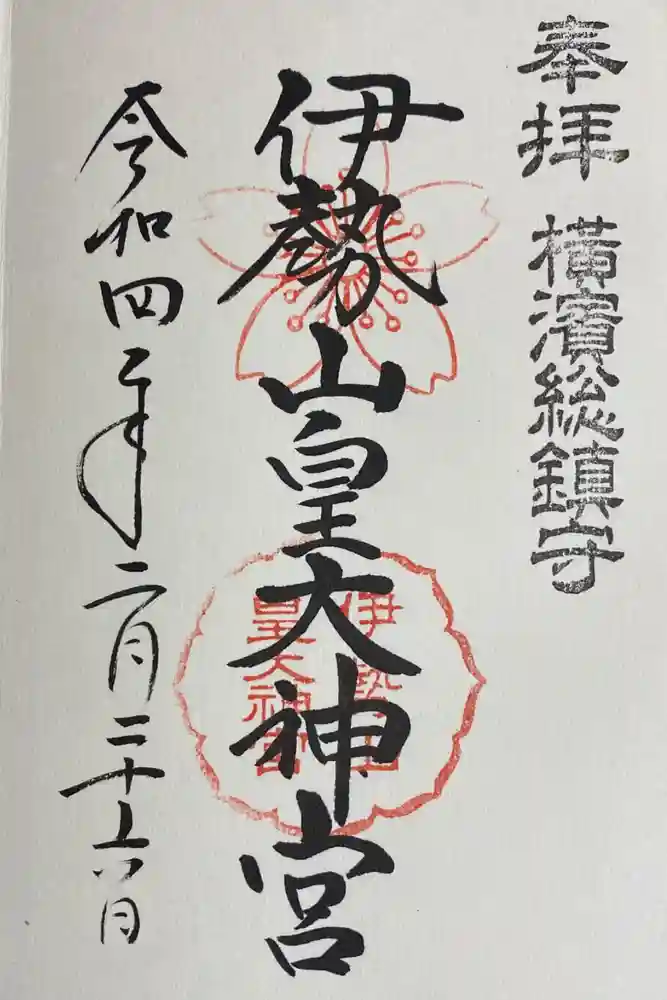 奉拝 横濱総鎮守
伊勢山皇大神宮
伊勢山
皇大神宮
令和四年二月二十六日